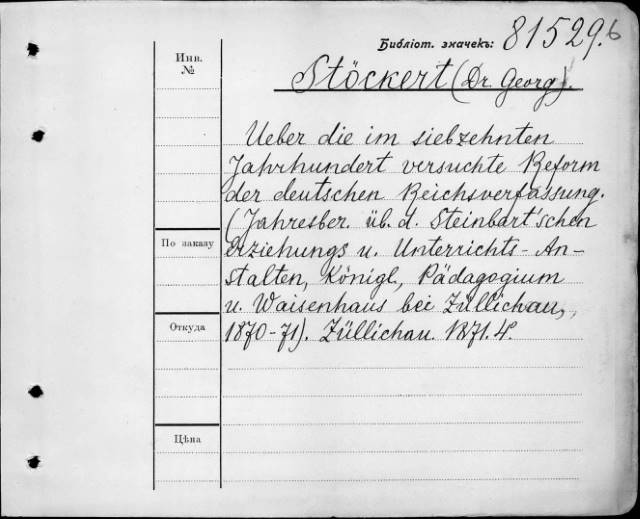 Библіот. значекъ: 81529.6
Инв.
№
Stöckert (Dr. Georg).
Ueber die im siebzehnten
Jahrhundert versuchte Reform
der deutschen Reichsverfassung.
(Jahresber. üb. d. Steinbart'schen
Erziehungs u. Unterrichts-An-
stalten, Königl., Pädagogium
u. Waisenhaus bei Züllichau,
1870-71). Züllichau. 1871. 4º.
По заказу
Откуда
Цѣна